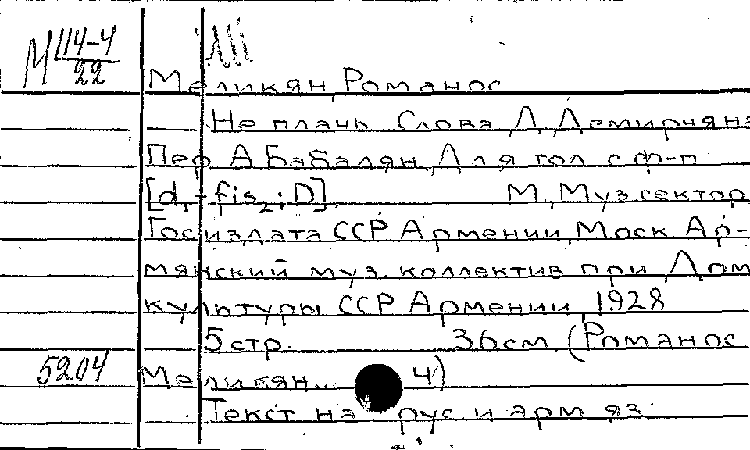 М 114-4
22
Меликян, Романос
Не плачь. Слова Д. Демирчяна
Пер. А. Бабалян. Для гол. с ф-п.
[d₁-fis₂; D] М., Муз. сектор
Госиздата ССР Армении, Моск. Ар-
мянский муз. коллектив при Доме
культуры ССР Армении, 1928
5 стр. 36 см (Романос
5204 Меликян.. 4)
Текст на рус. и арм. яз.